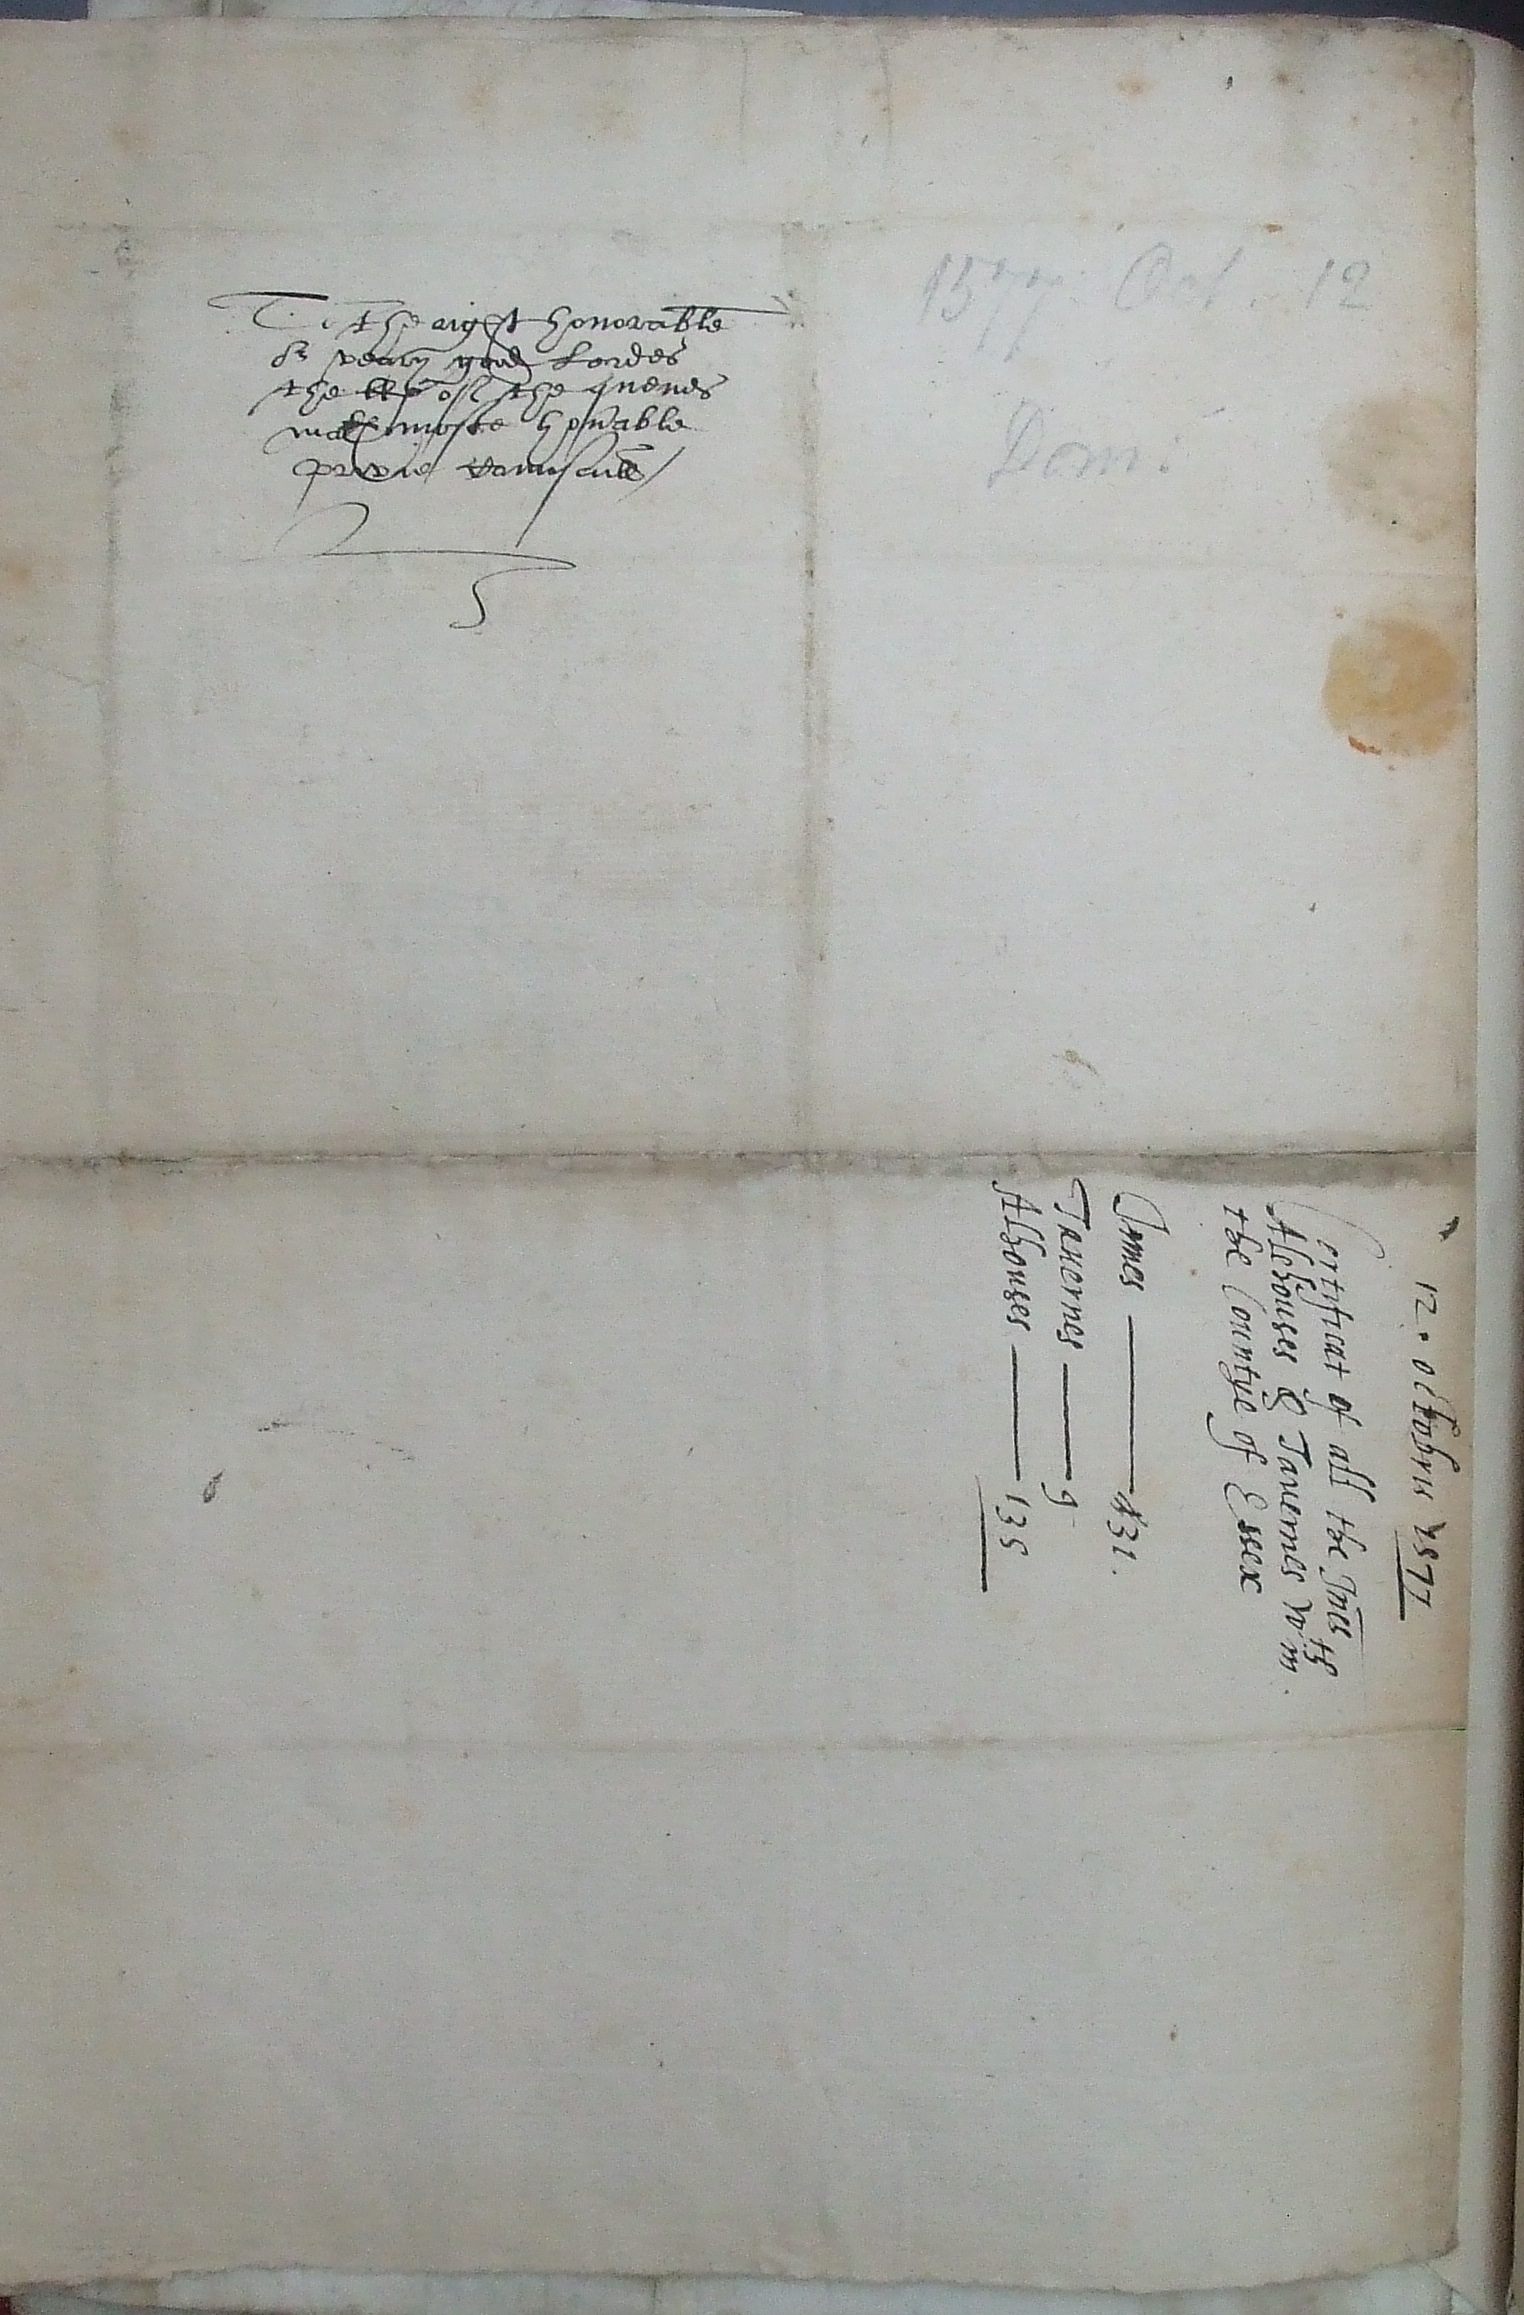 To the right honorable
& veary good Lordes
the LLps of the quenes
matis moste honable
privie Counsaile /
1577. Oct. 12
Dom:
12. octobris 1577
Certificat of all the Ines
Alehouses & Tauernes wthin
the Countye of Essex
Innes 131.
Tauernes 9
Alhouses 135